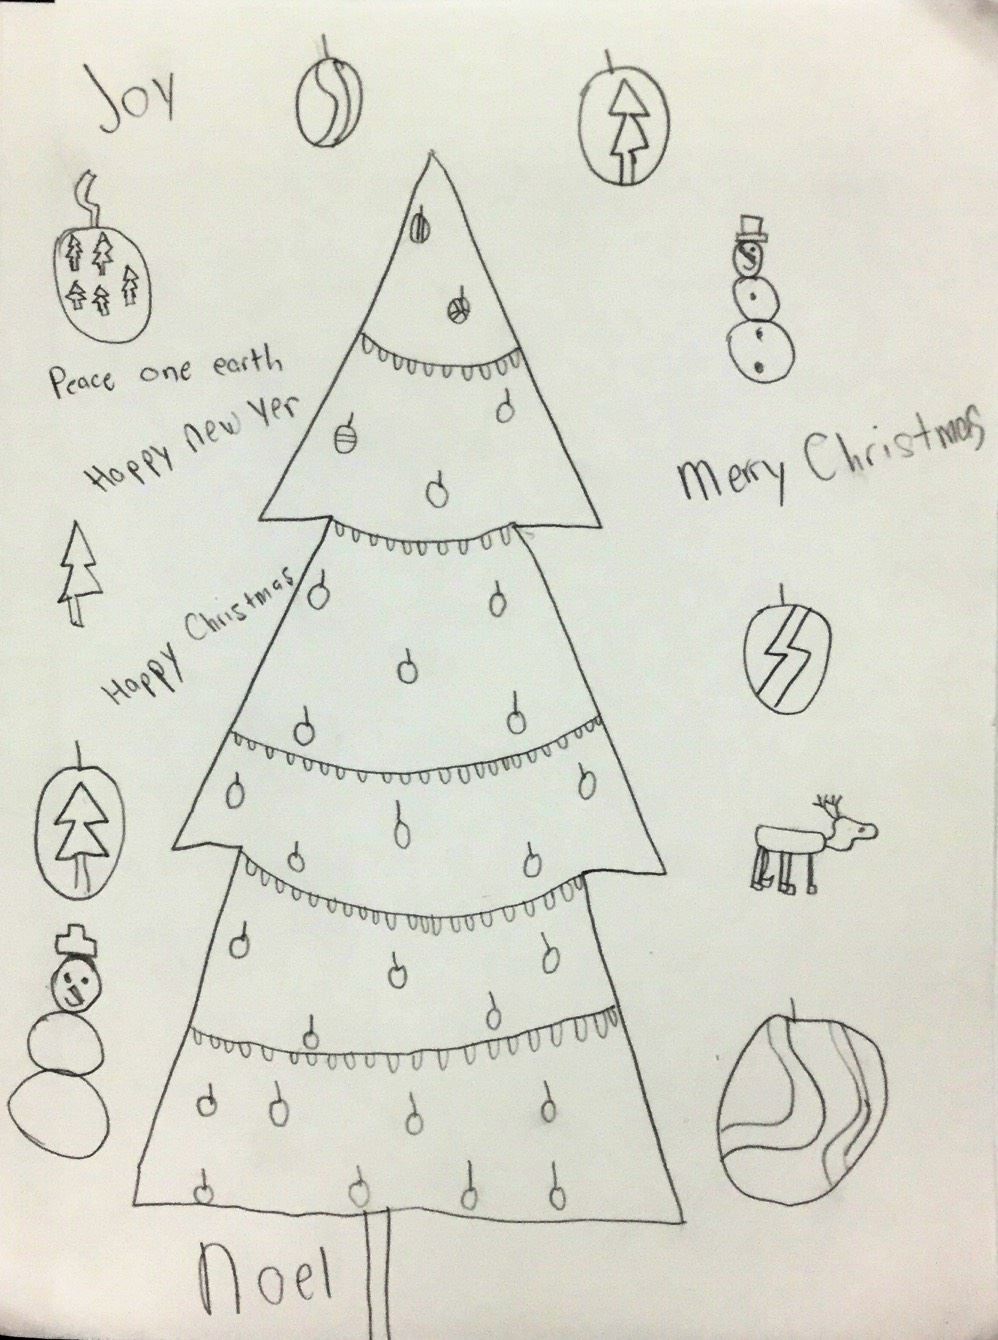 Joy
Peace one earth
Happy new Yer
Merry Christmas
Happy Christmas
Noel